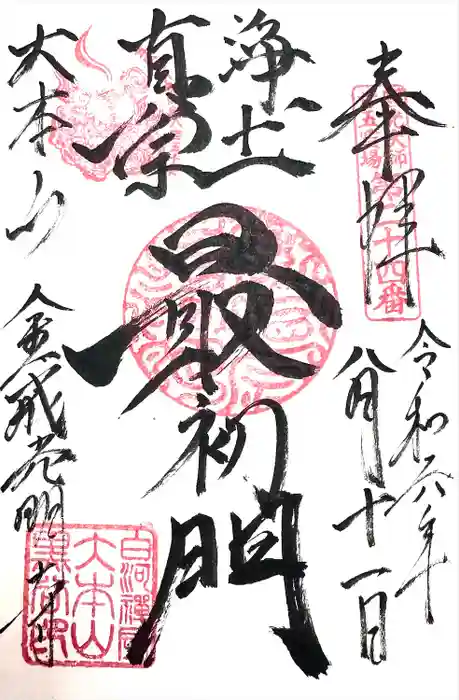 奉拝
令和六年
八月十一日
浄土
真宗
最初門
大本山
金戒光明寺
第二十四番
白河禅房
大本山
黒谷印